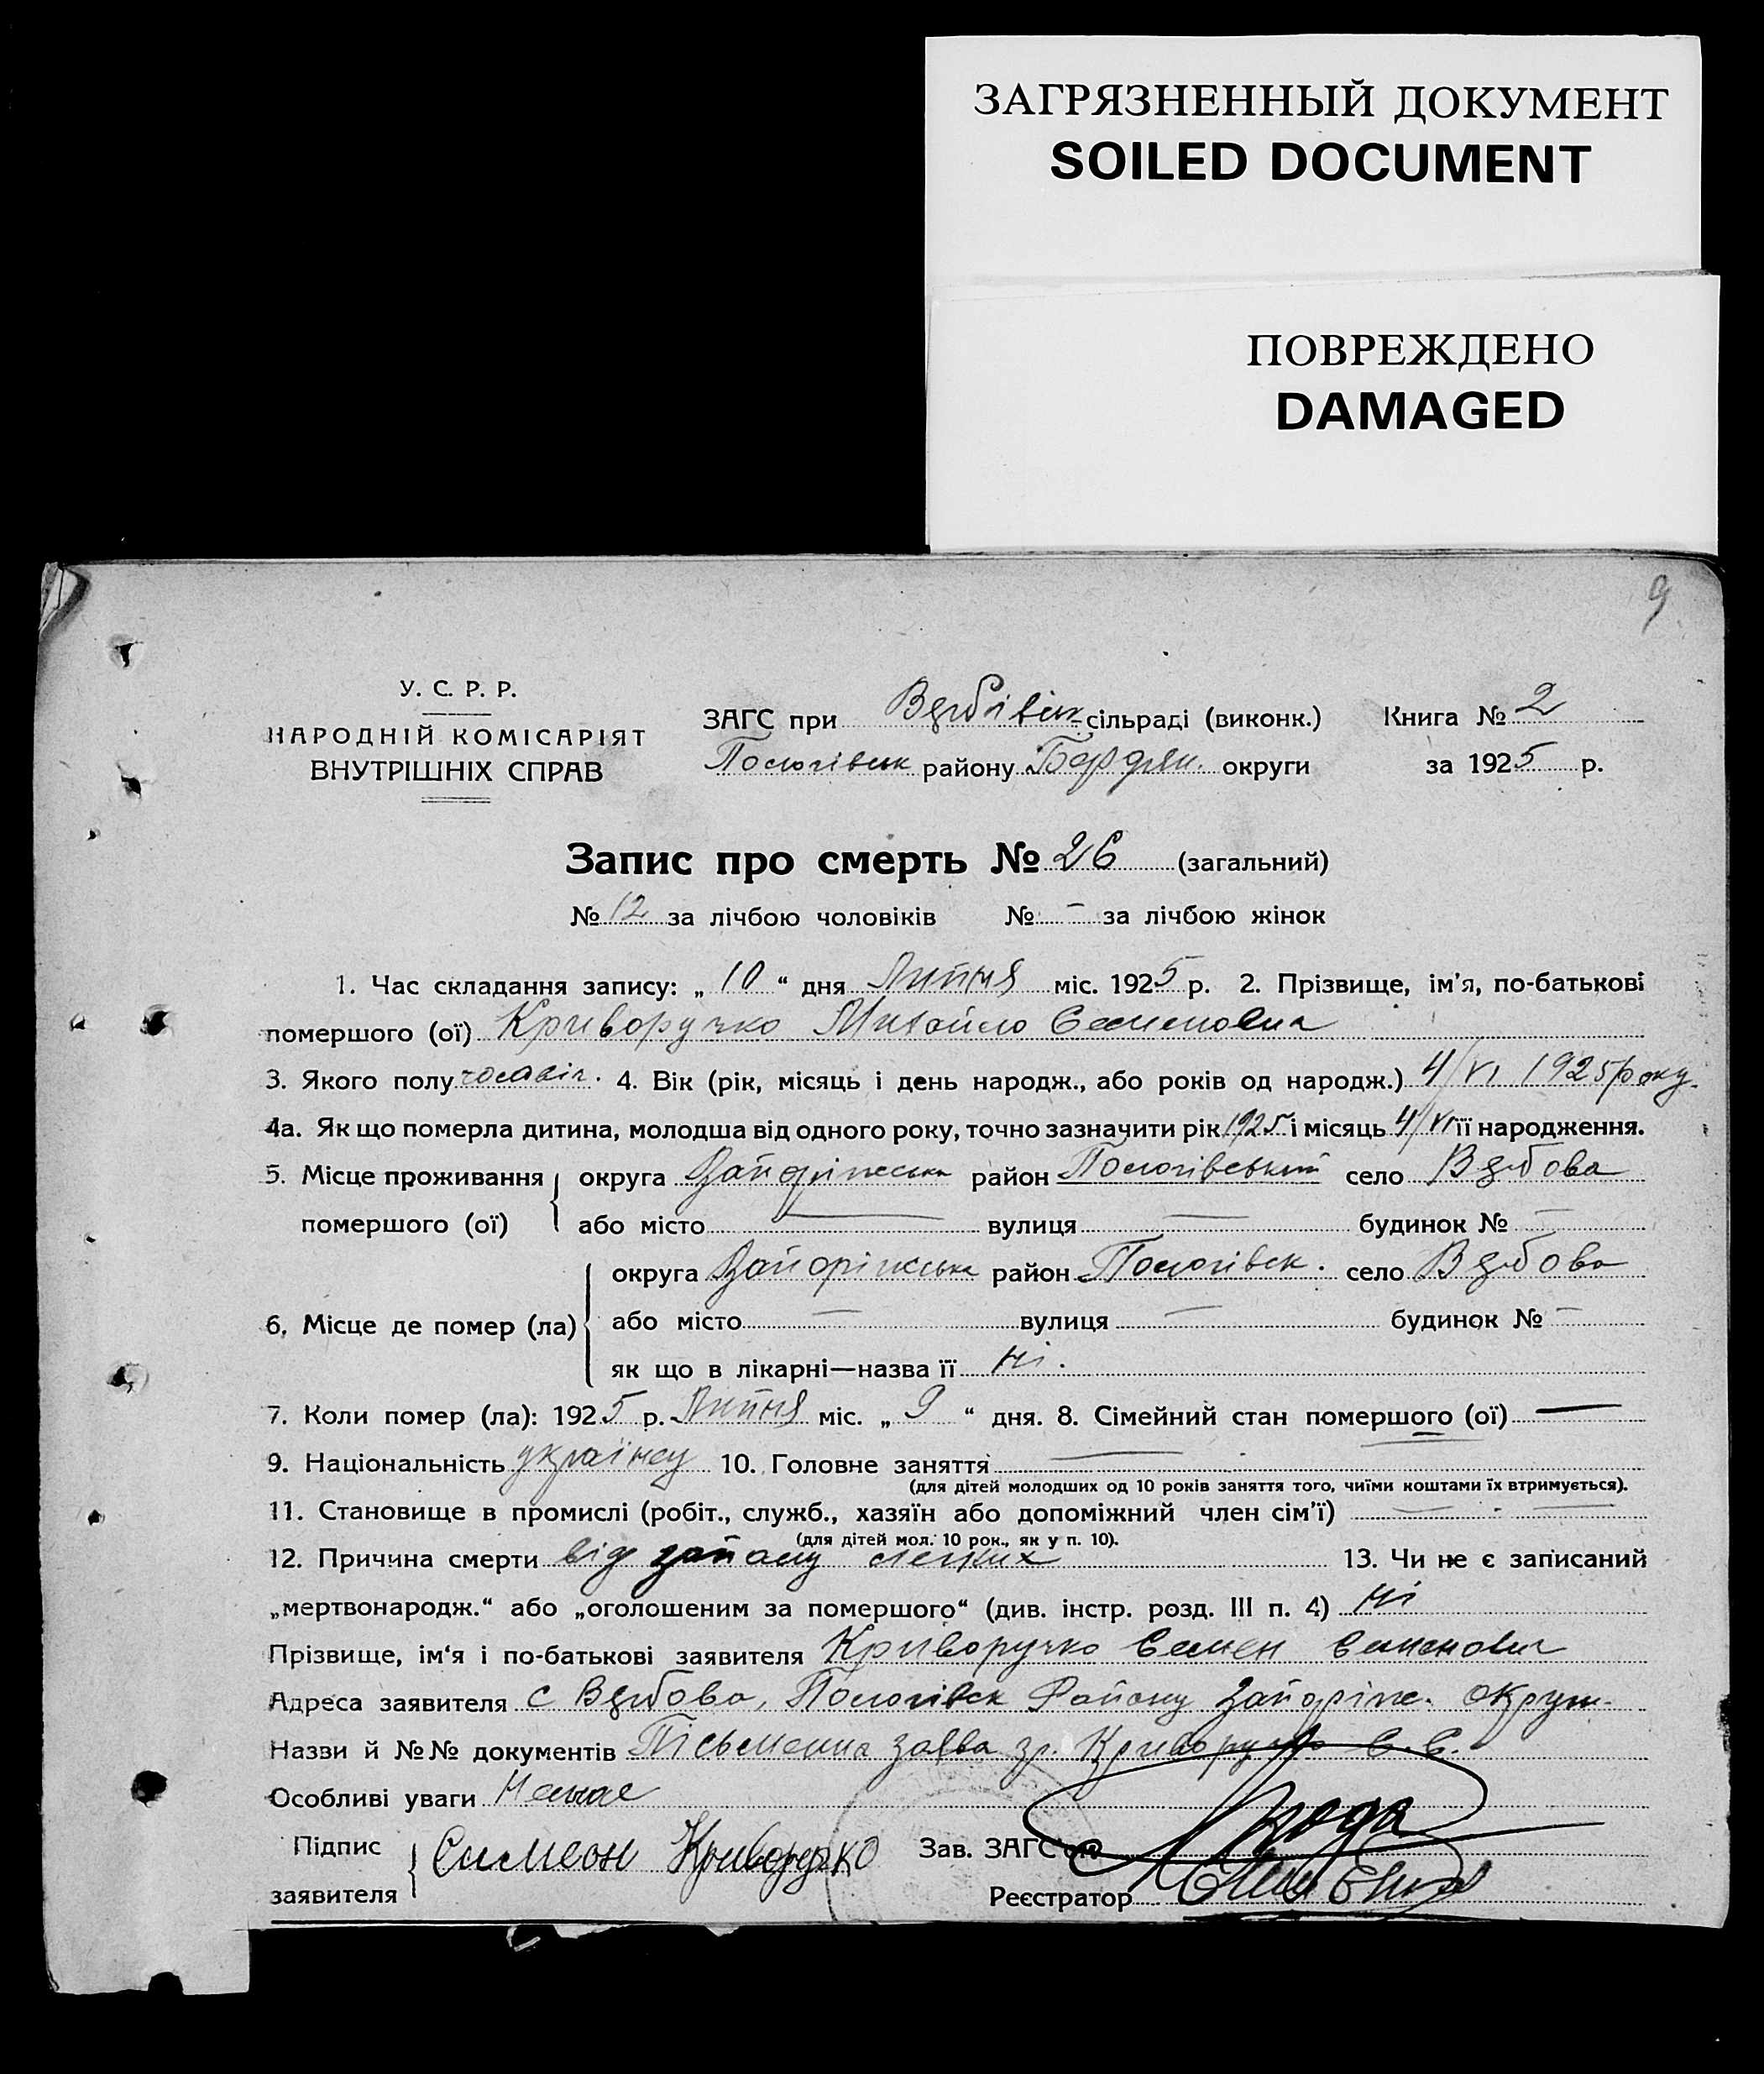 ЗАГРЯЗНЕННЫЙ ДОКУМЕНТ
SOILED DOCUMENT
ПОВРЕЖДЕНО
DAMAGED
9
У. С. Р. Р.
НАРОДНІЙ КОМІСАРІЯТ
ВНУТРІШНІХ СПРАВ
ЗАГС при Вербівськ сільраді (виконк.) Книга № 2
Пологівськ району Бердян. округи за 1925 р.
Запис про смерть № 26 (загальний)
№ 12 за лічбою чоловіків № – за лічбою жінок
1. Час складання запису: „ 10 “ дня Липня міс. 1925 р. 2. Прізвище, ім'я, по-батькові
помершого (ої) Криворучко Михайло Семенович
3. Якого полу чоловіч. 4. Вік (рік, місяць і день народж., або років од народж.) 4/VI 1925 року.
4а. Як що померла дитина, молодша від одного року, точно зазначити рік 1925 і місяць 4/VI її народження.
5. Місце проживання округа Запоріжська район Пологівський село Вербова
помершого (ої) або місто — вулиця — будинок № —
округа Запоріжська район Пологівськ. село Вербова
6. Місце де помер (ла) або місто — вулиця — будинок № —
як що в лікарні—назва її ні.
7. Коли помер (ла): 1925 р. Липня міс. „ 9 “ дня. 8. Сімейний стан помершого (ої) —
9. Національність українец 10. Головне заняття —
(для дітей молодших од 10 років заняття того, чиїми коштами їх втримується).
11. Становище в промислі (робіт., служб., хазяїн або допоміжний член сім'ї) — - —
(для дітей мол. 10 рок., як у п. 10).
12. Причина смерти від запалу легких 13. Чи не є записаний
„мертвонародж.“ або „оголошеним за помершого“ (див. інстр. розд. III п. 4) ні
Прізвище, ім'я і по-батькові заявителя Криворучко Семен Семенович
Адреса заявителя с Вербова, Пологівск Району Запоріж. округи
Назви й №№ документів Пісьменна заява гр. Криворучко С. С.
Особливі уваги Немає
Підпис заявителя Симеон Криворучко Зав. ЗАГС'ом
Реєстратор